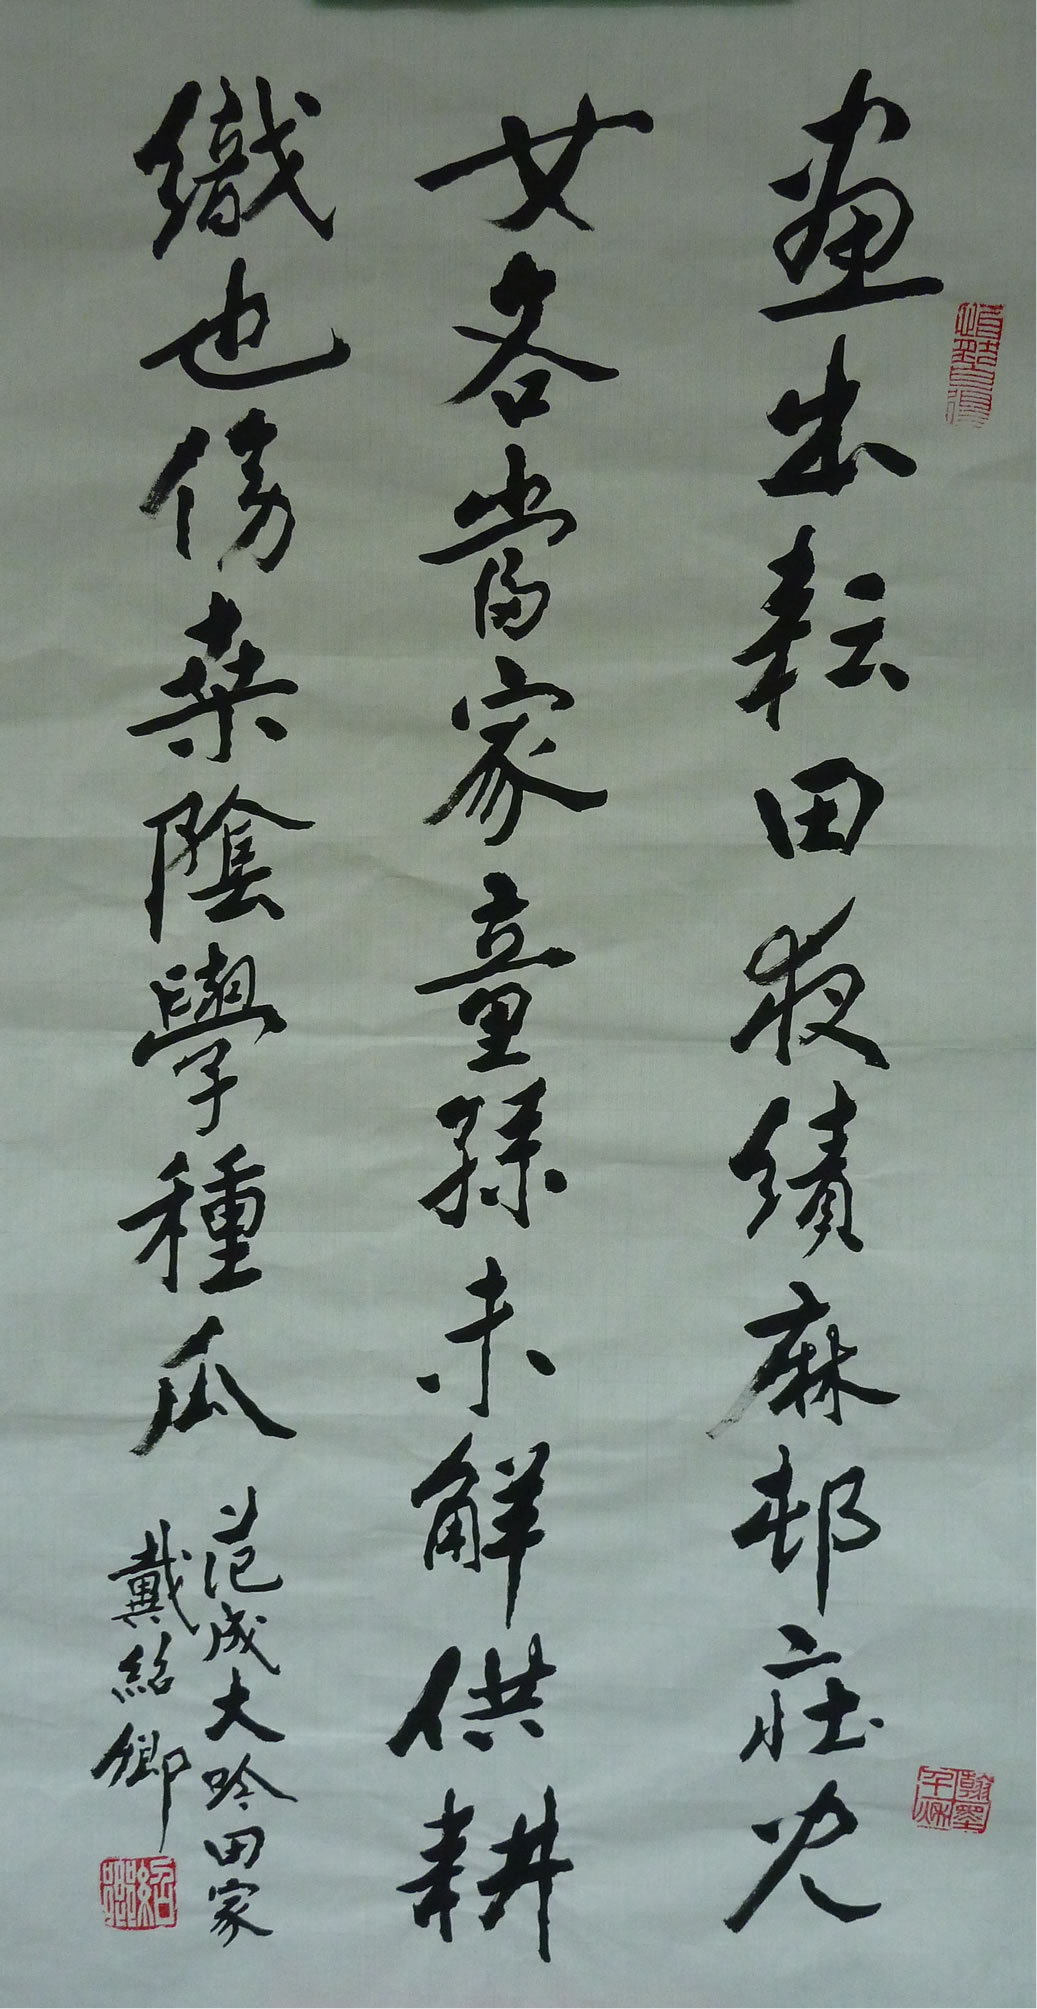 晝出耘田夜績麻邨莊兒
女各當家童孫未解供耕
織也傍桑陰學種瓜
范成大吟田家
戴紹卿
紹卿
翰墨千秋